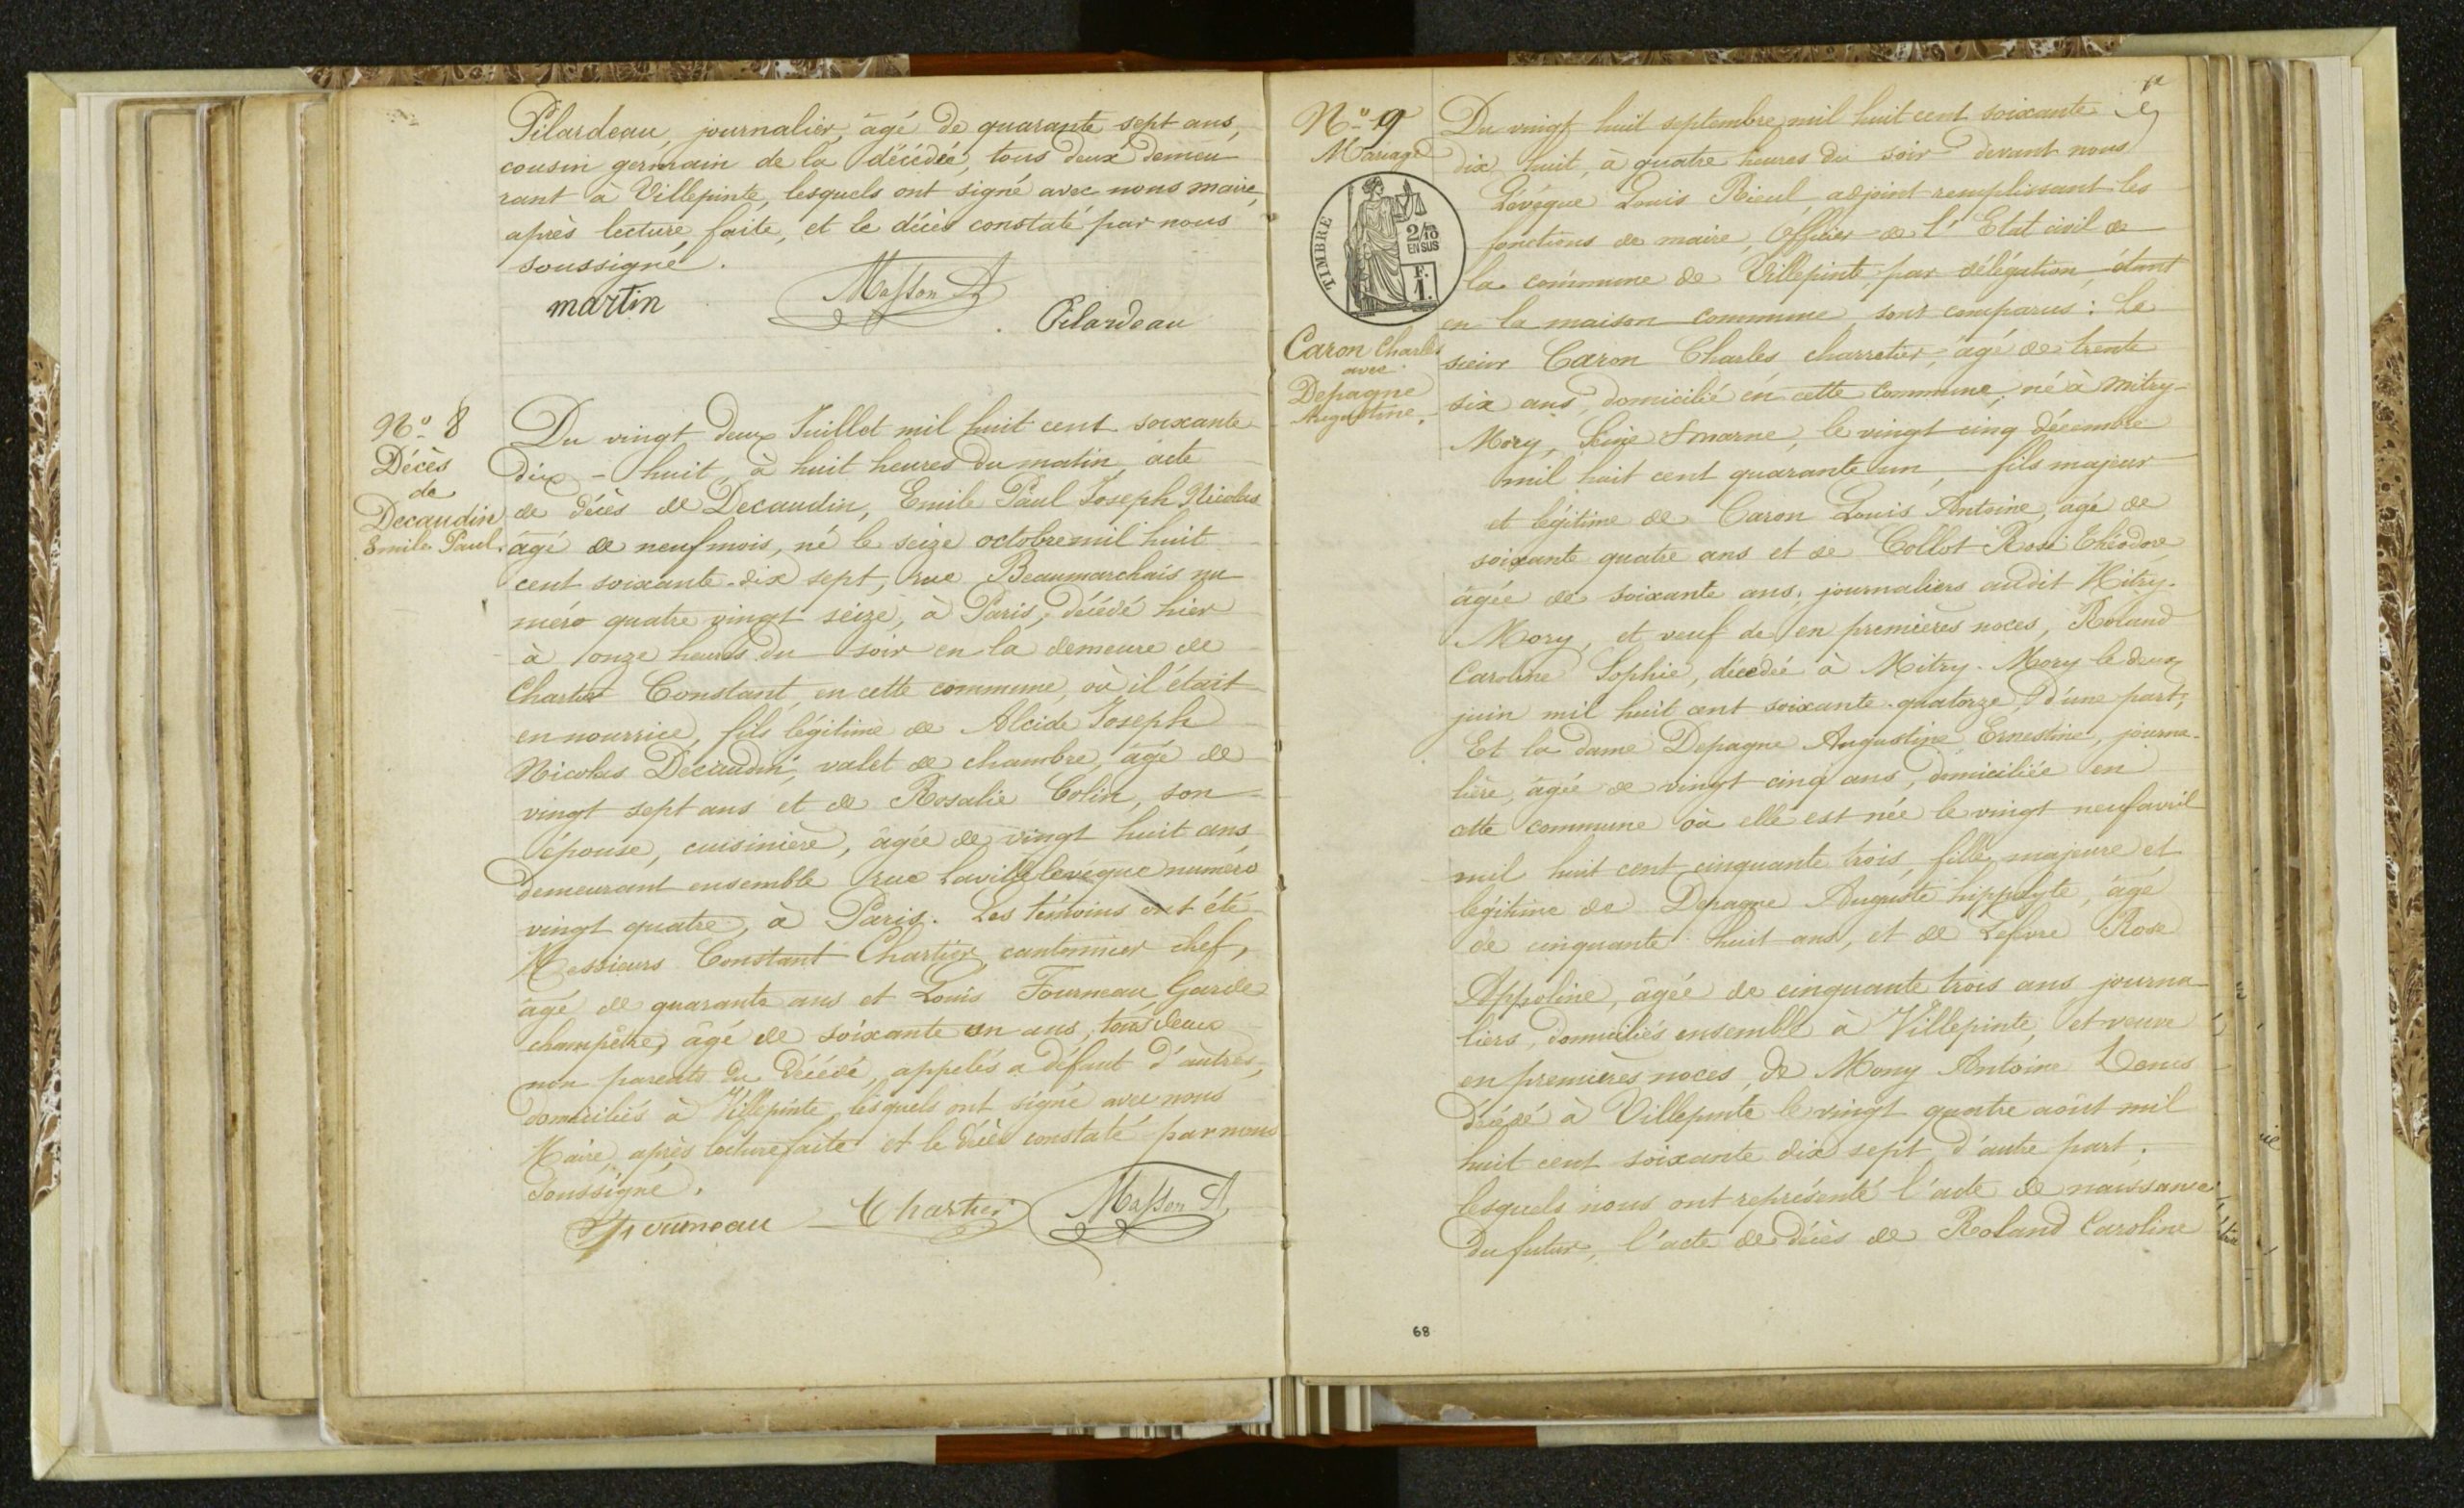 Pilardeau, journalier, âgé de quarante sept ans,
cousin germain de la décédée, tous deux demeu
rant à Villepinte, lesquels ont signé avec nous maire,
après lecture faite, et le décès constaté par nous
soussigné.
martin
Masson A
Pilardeau
No 8
Décès
de
Decaudin
Emile Paul.
Du vingt deux Juillet mil huit cent soixante
dix-huit, à huit heures du matin, acte
de décès de Decaudin, Emile Paul Joseph Nicolas
âgé de neuf mois, né le seize octobre mil huit
cent soixante-dix sept, rue Beaumarchais nu
méro quatre vingt seize, à Paris, décédé hier
à onze heures du soir en la demeure de
Chartier Constant, en cette commune, où il était
en nourrice, fils légitime de Alcide Joseph
Nicolas Decaudin, valet de chambre, âgé de
vingt sept ans et de Rosalie Colin, son
épouse, cuisinière, âgée de vingt huit ans
demeurant ensemble rue Lavillelevéque numéro
vingt quatre, à Paris. Les témoins ont été
Messieurs Constant Chartier, cantonnier chef,
âgé de quarante ans et Louis Fourneau, Garde
champêtre, âgé de soixante un ans, tous deux
non parents du décédé, appelés a défaut d'autres,
domiciliés à Villepinte, lesquels ont signé avec nous
Maire, après lecture faite et le décès constaté par nous
soussigné.
Fourneau
Chartier
Masson A
No 9
Mariage
TIMBRE
2/10
EN SUS
F.
1.
Caron Charles
avec
Depagne
Augustine.
Du vingt huit septembre mil huit cent soixante
dix huit, à quatre heures du soir devant nous
Lévêque Louis Rieul, adjoint remplissant les
fonctions de maire, Officier de l'Etat civil de
la commune de Villepinte, par délégation, étant
en la maison commune, sont comparus : Le
sieur Caron Charles, charretier, âgé de trente
six ans, domicilié en cette commune, né à Mitry-
Mory, Seine & marne, le vingt cinq décembre
mil huit cent quarante un, fils majeur
et légitime de Caron Louis Antoine, âgé de
soixante quatre ans et de Collot Rose Théodore
âgée de soixante ans, journaliers audit Mitry-
Mory, et veuf de en premières noces, Roland
Caroline Sophie, décédée à Mitry-Mory le deux
juin mil huit cent soixante-quatorze, d'une part,
Et la dame Depagne Augustine Ernestine, journa-
lière, âgée de vingt cinq ans, domiciliée en
cette commune où elle est née le vingt neuf avril
mil huit cent cinquante trois, fille majeure et
légitime de Depagne Auguste hippolyte, âgé
de cinquante huit ans, et de Lefvre Rose
Appoline, âgée de cinquante trois ans journa-
liers, domiciliés ensemble à Villepinte, et veuve
en premières noces, de Mony Antoine Denis
décédé à Villepinte le vingt quatre août mil
huit cent soixante dix sept, d'autre part.
lesquels nous ont représenté l'acte de naissance
du futur, l'acte de décès de Roland Caroline
68